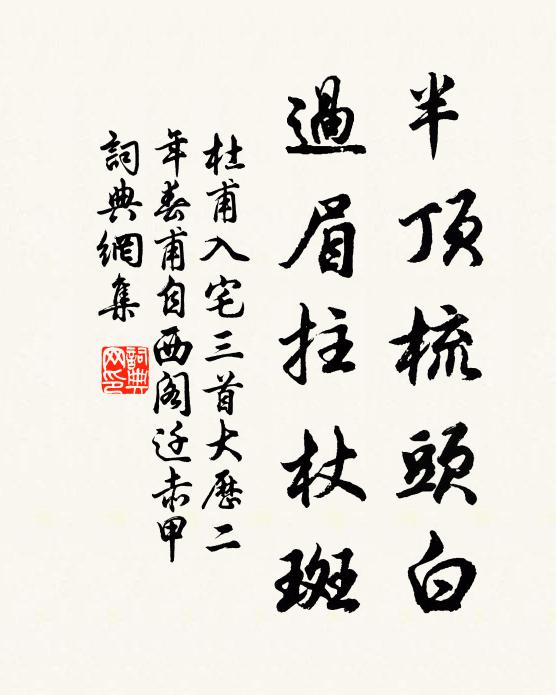 半頂梳頭白
過眉拄杖斑
杜甫入宅三首大歷二
年春甫自西閣迁赤甲
詞典網集
詞典網印